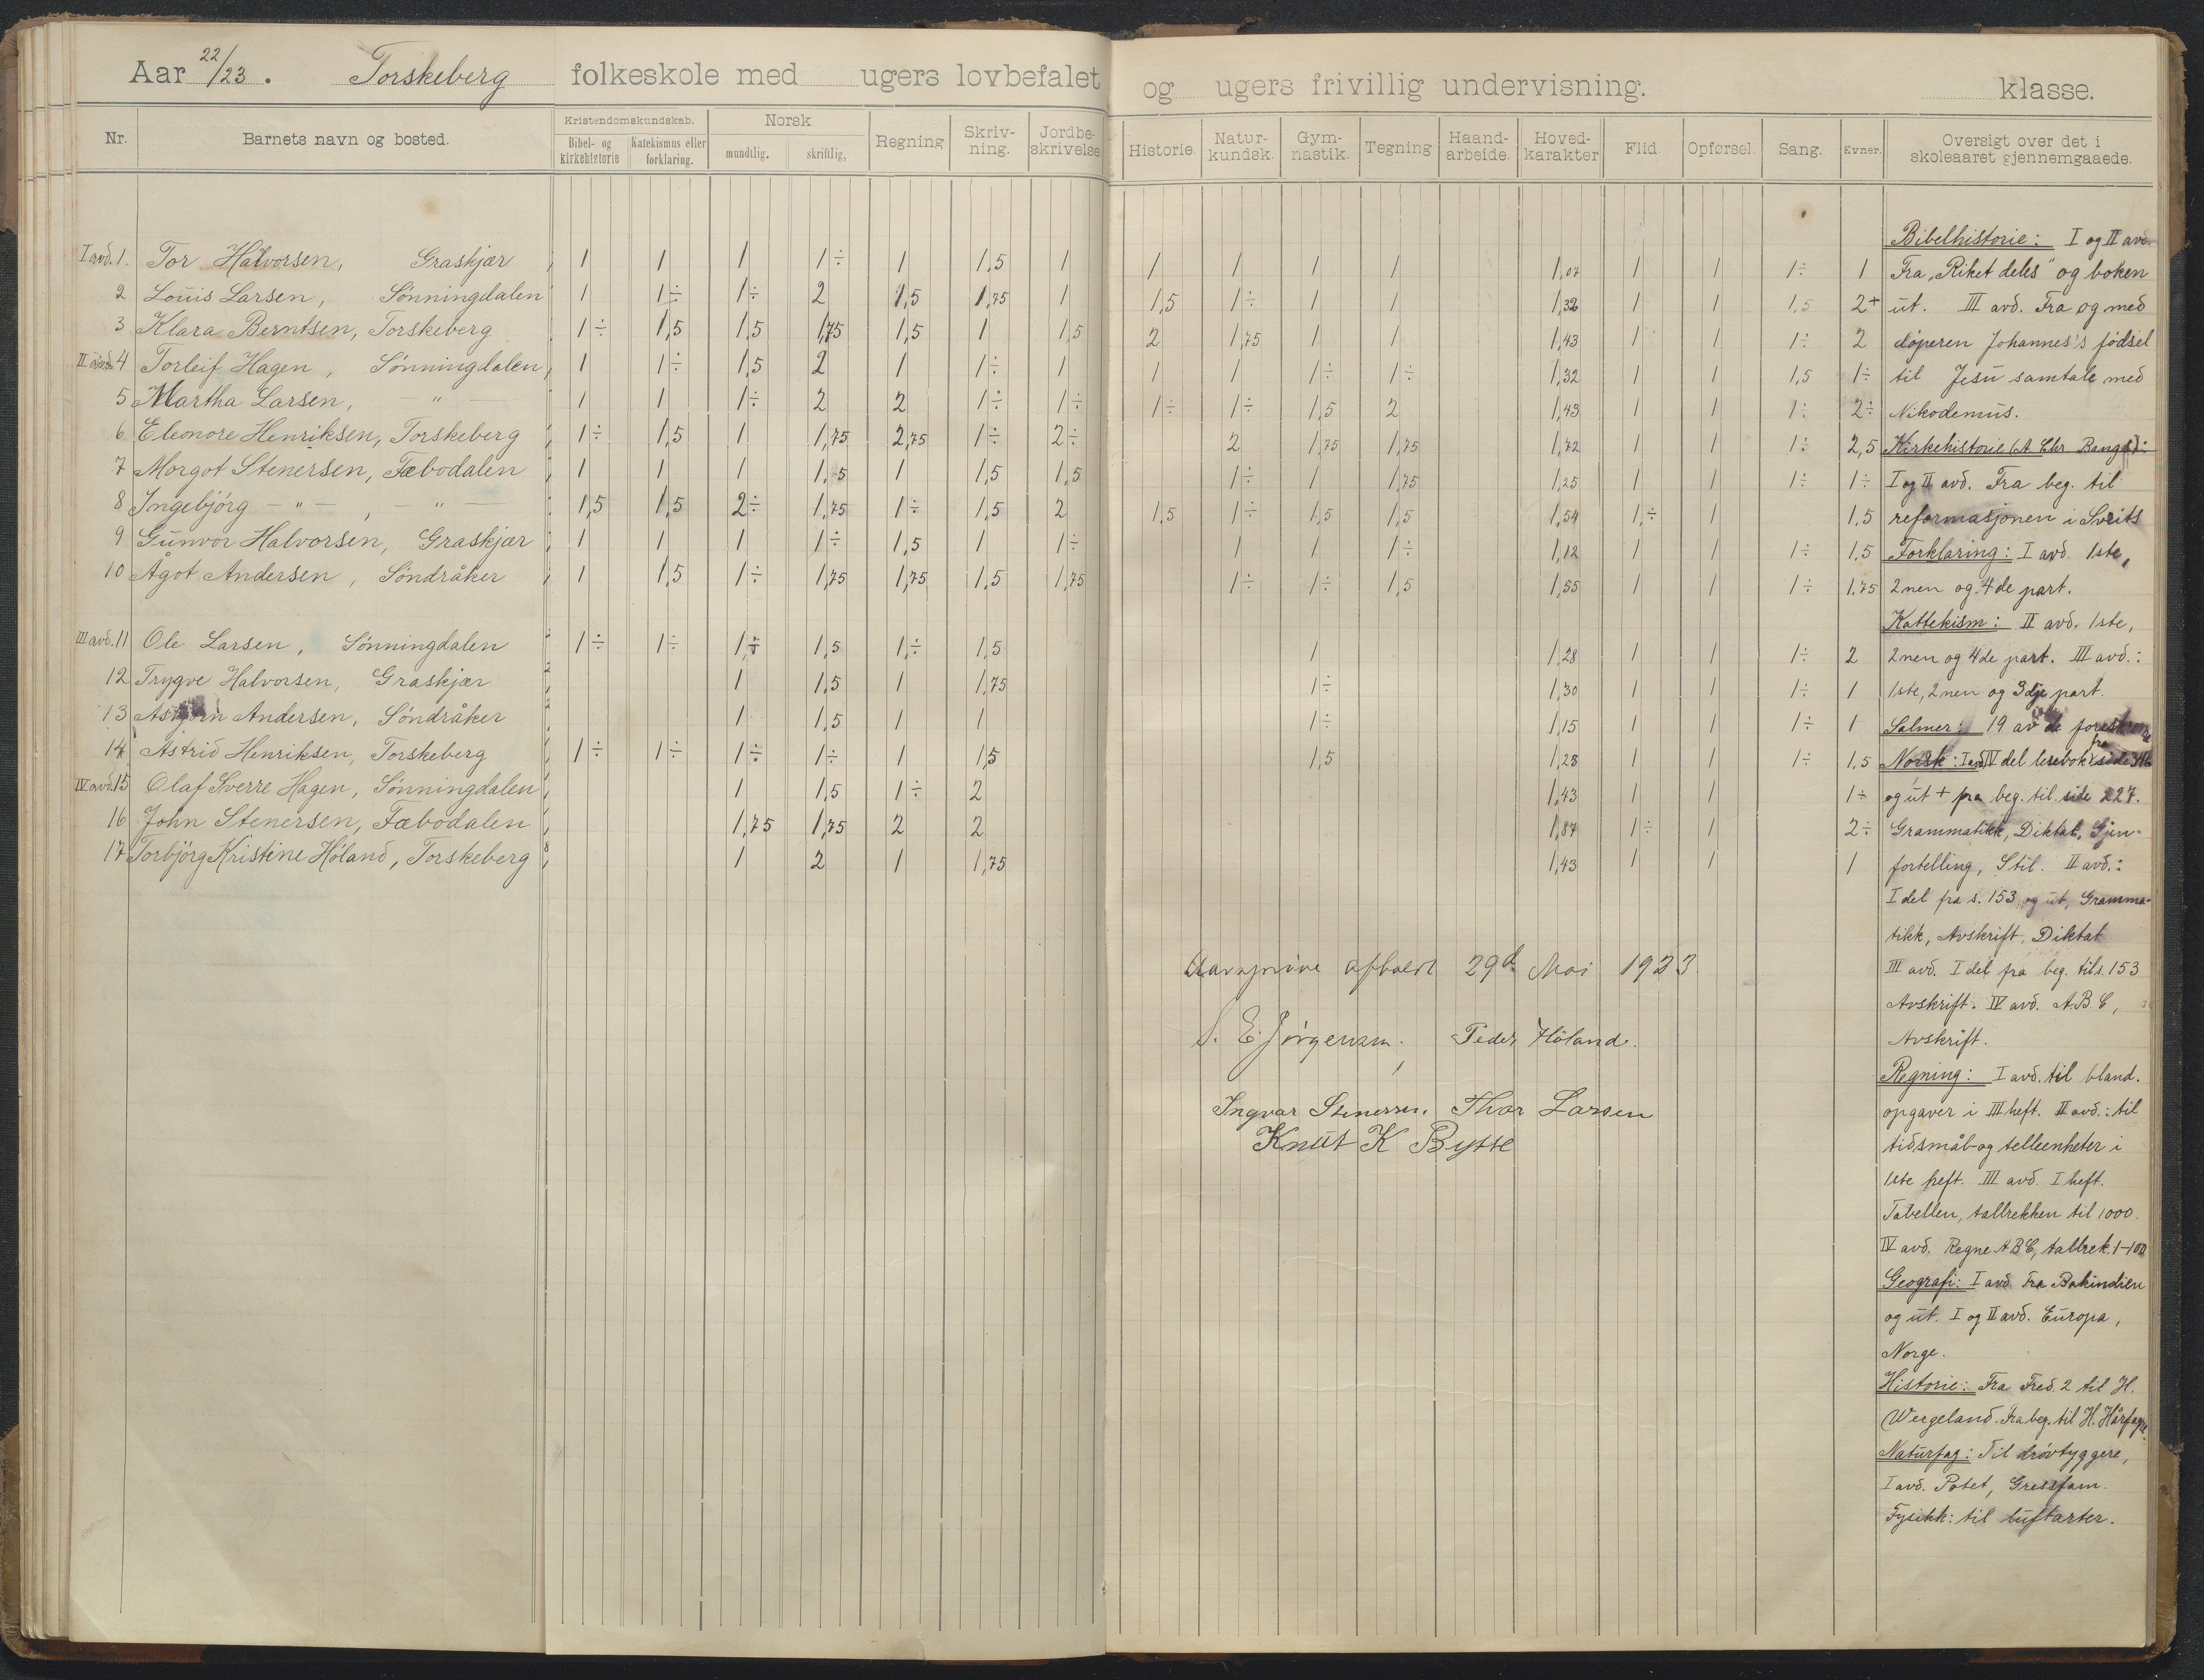 Aar 22/23. Torskeberg folkeskole med ugers lovbefalet og ugers frivillig undervisning. klasse.
Nr. Barnets navn og bosted. Kristendomskundskab. Bibel- og kirkehistorie Katekismus eller forklaring. Norsk mundtlig. skriftlig, Regning Skriv-ning. Jordbe-skrivelse Historie. Natur-kundsk. Gym-nastik. Tegning Haand-arbeide. Hoved-karakter Flid. Opførsel. Sang. Evner. Oversigt over det i skoleaaret gjennemgaaede.
I avd. 1. Tor Halvorsen, Graskjær 1 1 1 1÷ 1 1,5 1 1 1 1 1 1,07 1 1 1÷ 1
2 Louis Larsen, Sönningdalen 1 1÷ 1÷ 2 1,5 1,75 1 1,5 1÷ 1 1 1,32 1 1 1,5 2+
3 Klara Berntsen, Torskeberg 1÷ 1,5 1,5 1,75 1,5 1 1,5 2 1,75 1 1 1,43 1 1 1÷ 2
II avd. 4 Torleif Hagen, Sönningdalen, 1 1÷ 1,5 2 1 1÷ 1 1 1 1÷ 1÷ 1,32 1 1 1,5 1÷
5 Martha Larsen, — " — 1 1 1÷ 2 2 1÷ 1÷ 1÷ 1÷ 1,5 2 1,43 1 1 1÷ 2÷
6 Eleonore Henriksen, Torskeberg 1÷ 1,5 1 1,75 2,75 1÷ 2÷ 2 1,75 1,75 1,72 1 1 1÷ 2,5
7 Morgot Stenersen, Fæbodalen 1 1 1 1,5 1 1,5 1,5 1÷ 1 1,75 1,25 1 1 1÷ 1÷
8 Ingebjörg — " —, — " — 1,5 1,5 2÷ 1,75 1÷ 1,5 2 1,5 1÷ 1,5 1,5 1,54 1,÷ 1 1,5
9 Gunvor Halvorsen, Graskjær 1 1 1 1÷ 1,5 1 1÷ 1 1 1÷ 1,12 1 1 1÷ 1,5
10 Ågot Andersen, Söndråker 1 1,5 1÷ 1,75 1,75 1,5 1,75 1÷ 1÷ 1,5 1,55 1 1 1÷ 1.75
III avd. 11 Ole Larsen, Sönningdalen 1÷ 1÷ 1÷ 1,5 1,÷ 1,5 1 1,28 1 1 1÷ 2
12 Trygve Halvorsen, Graskjær 1 1,5 1 1,75 1÷ 1,30 1 1 1÷ 1
13 Asbjørn Andersen, Söndråker 1 1,5 1 1 1÷ 1,15 1 1 1÷ 1
14 Astrid Henriksen, Torskeberg 1÷ 1÷ 1÷ 1÷ 1 1,5 1,5 1,28 1 1 1÷ 1,5
IV avd. 15 Olaf Sverre Hagen, Sönningdalen 1 1,5 1÷ 2 1,43 1 1 1÷
16 John Stenersen, Fæbodalen 1,75 1,75 2 2 1,87 1÷ 1 2÷
17 Torbjörg Kristine Höland, Torskeberg 1 2 1 1,75 1,43 1 1 1
Aarsprøve afholdt 29d Mai 1923.
S. E. Jörgensen. Peder Höland.
Ingvar Stenersen. Thor Larsen
Knut K Bytte
Bibelhistorie: I og II avd.
Fra "Riket deles" og boken
ut. III avd. Fra og med
döperen Johannes's födsel
til Jesu samtale med
Nikodemus.
Kirkehistorie (A. Chr. Bangs):
I og II avd. Fra beg. til
reformasjonen i Sveits
Forklaring: I avd. 1ste,
2nen og 4de part.
Kattekism: II avd. 1ste,
2nen og 4de part. III avd.:
1ste, 2nen og 3dje part.
Salmer: 19 av de
Norsk: I avd IV del lesebok fra side 316
og ut + fra beg. til side 227.
Grammatikk, Diktat, Gjen-
fortelling, Stil. II avd.:
I del fra s. 153 og ut, Gramma-
tikk, Avskrift, Diktat
III avd. I del fra beg. til s. 153
Avskrift. IV avd. A.B.C,
Avskrift.
Regning: I avd. til bland.
opgaver i III heft. II avd.: til
tidsmål og telleenheter i
1ste heft. III avd. I heft.
Tabellen, tallrekken til 1000.
IV avd. Regne A B C, tallrek. 1-100
Geografi: I avd. Fra Bakindien
og ut. I og II avd. Europa,
Norge.
Historie: Fra Fred. 2 til H.
Wergeland. Fra beg. til H. Hårfagre.
Naturfag: Til drövtyggere,
I avd. Potet, Gressfam.
Fysikk: til luftarter.